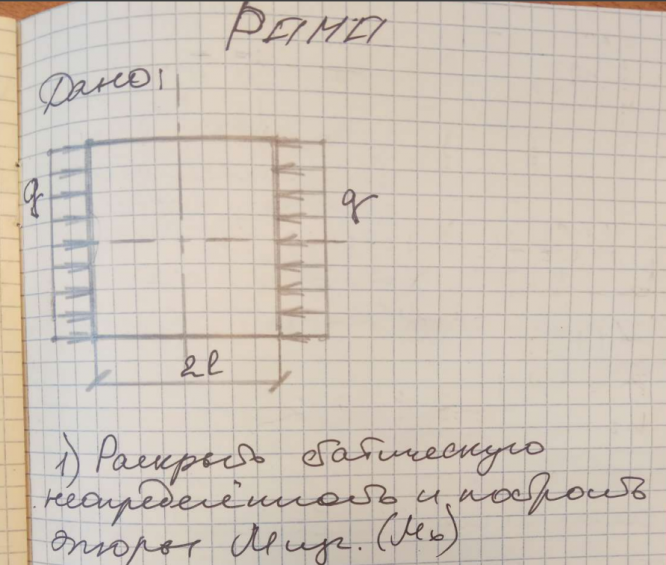 Рама
Дано:
q
q
2l
1) Раскрыть статическую
неопределённость и построить
эпюры Мизг. (Мх)